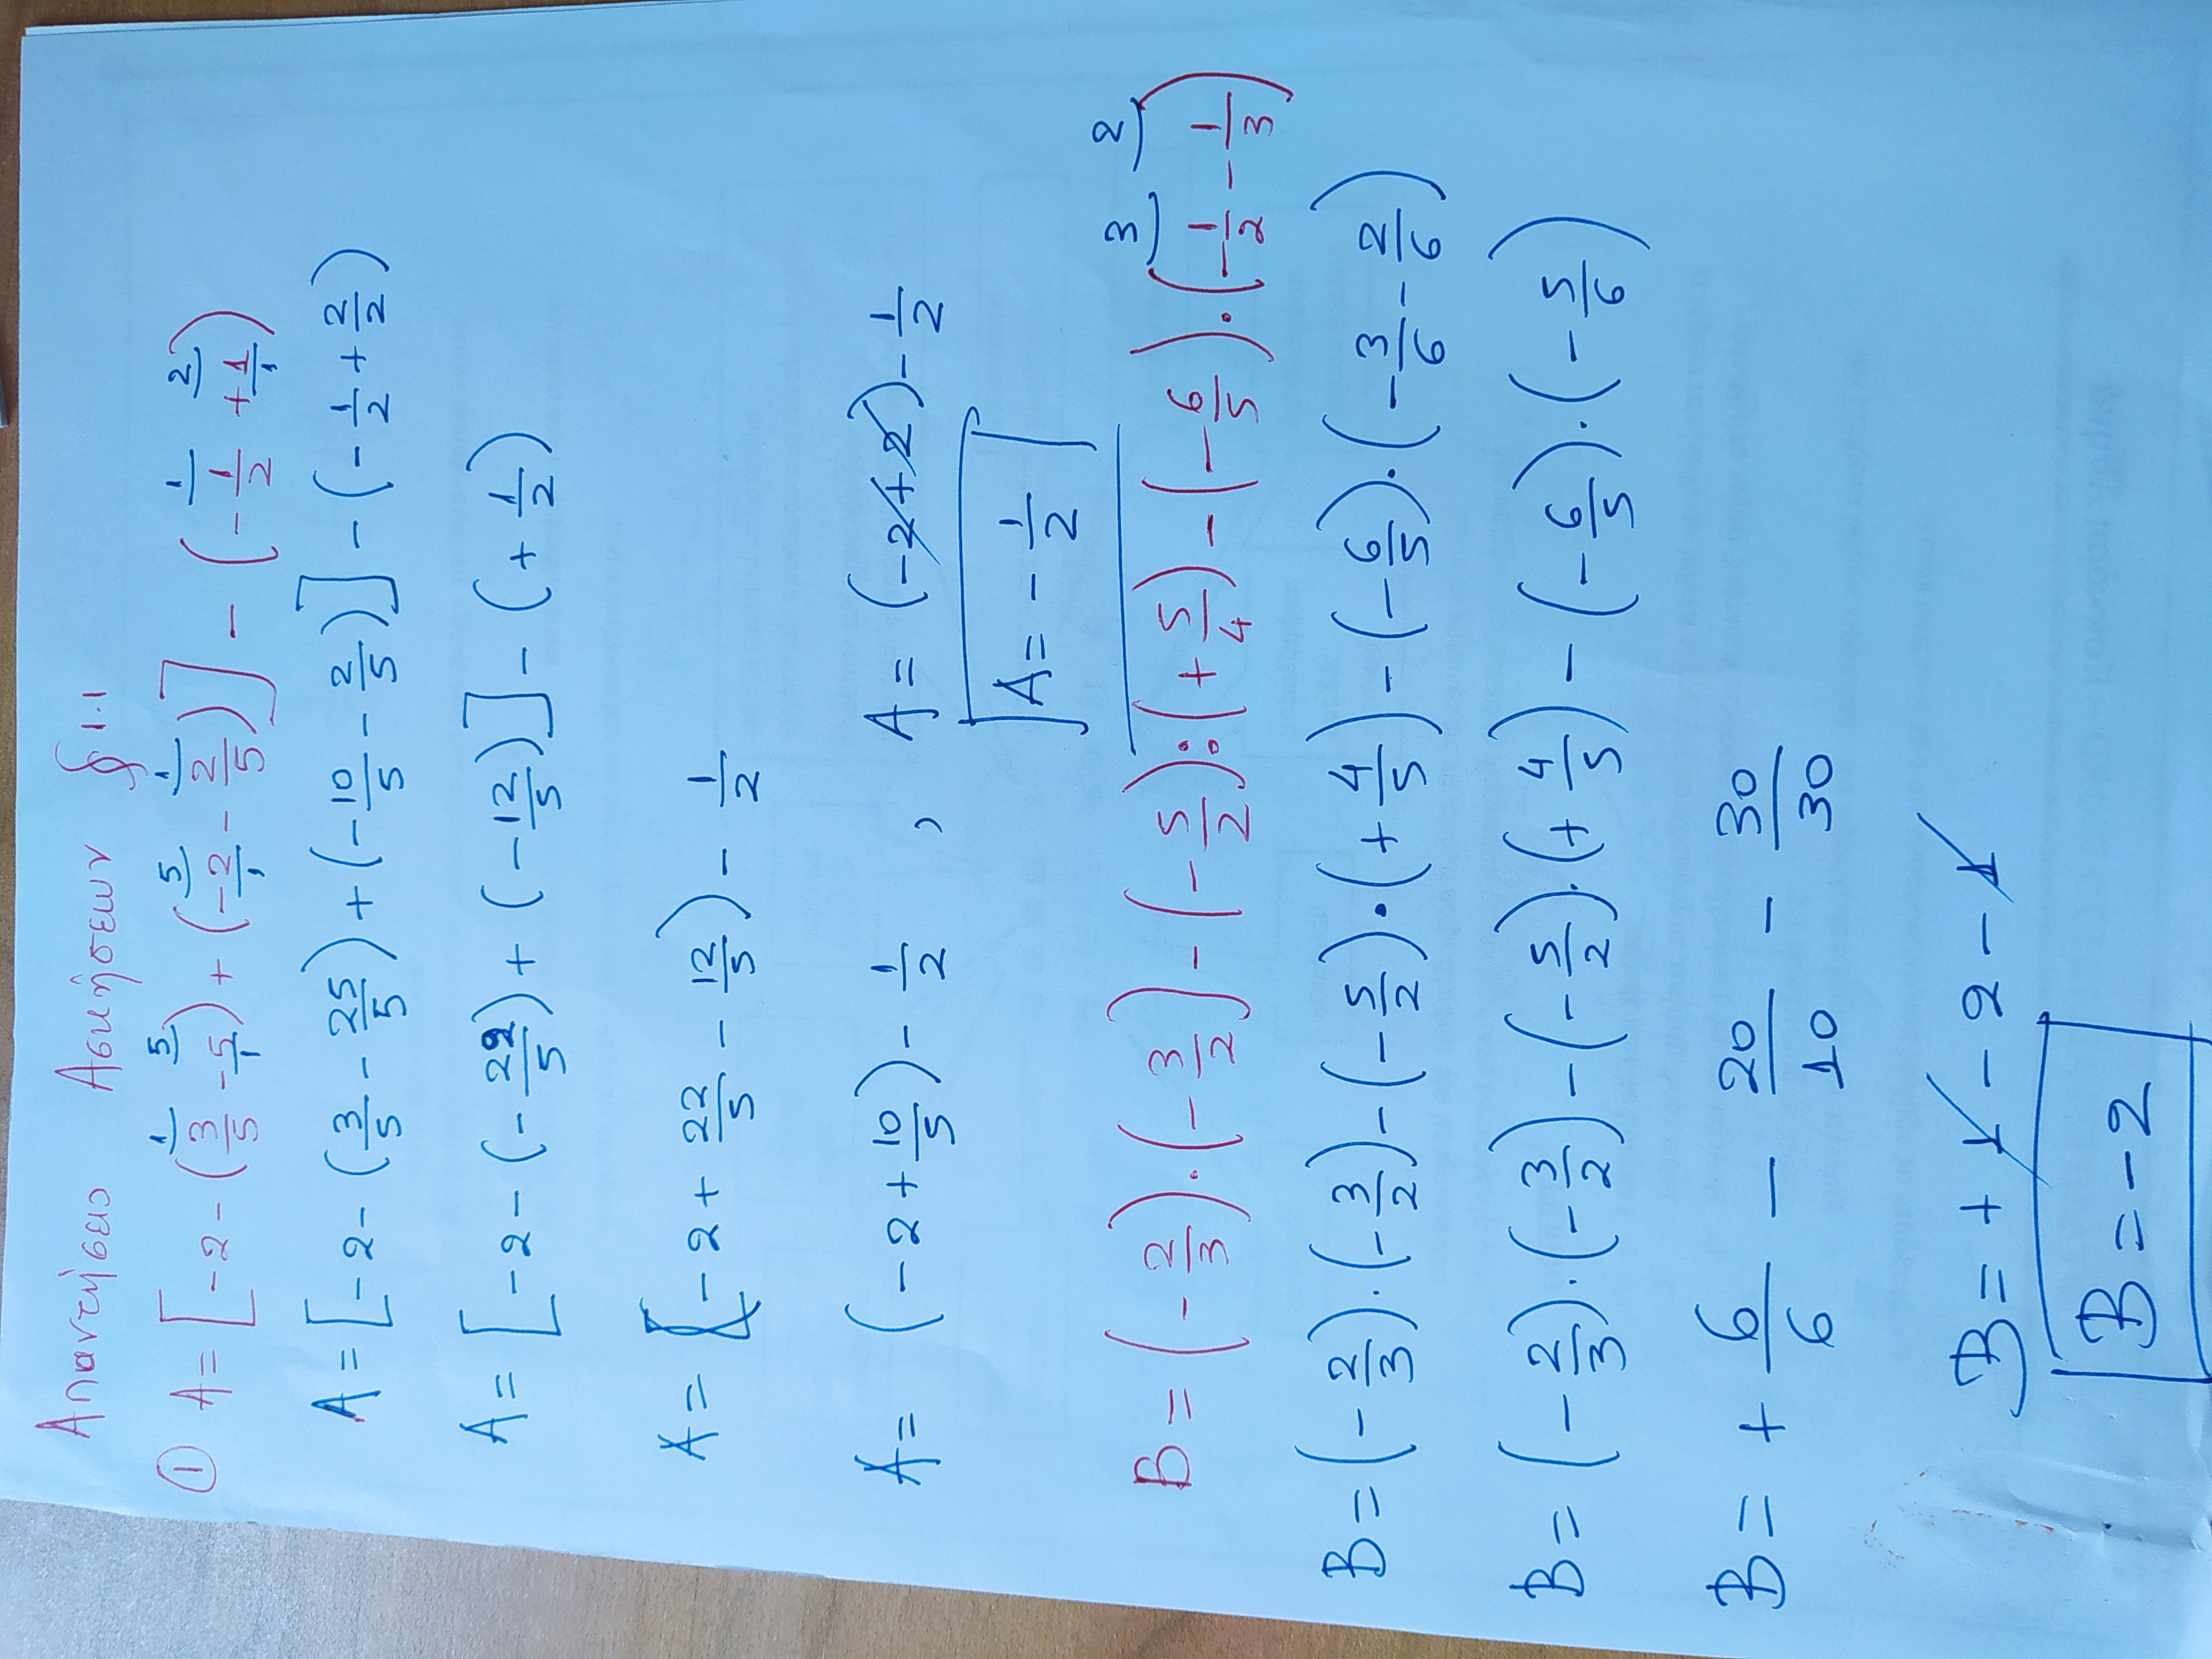 Απαντήσεις Ασκήσεων § 1.1
① A = [-2 - (3/5 - 5/1) + (-2/1 - 2/5)] - (-1/2 + 1/1)
A = [-2 - (3/5 - 25/5) + (-10/5 - 2/5)] - (-1/2 + 2/2)
A = [-2 - (-22/5) + (-12/5)] - (+1/2)
A = (-2 + 22/5 - 12/5) - 1/2
A = (-2 + 10/5) - 1/2 , A = (-2+2) - 1/2
A = -1/2
B = (-2/3)·(-3/2) - (-5/2):(+5/4) - (-6/5)·(-1/2 - 1/3)
B = (-2/3)·(-3/2) - (-5/2)·(+4/5) - (-6/5)·(-3/6 - 2/6)
B = (-2/3)·(-3/2) - (-5/2)·(+4/5) - (-6/5)·(-5/6)
B = + 6/6 - 20/10 - 30/30
B = +1 - 2 - 1
B = -2